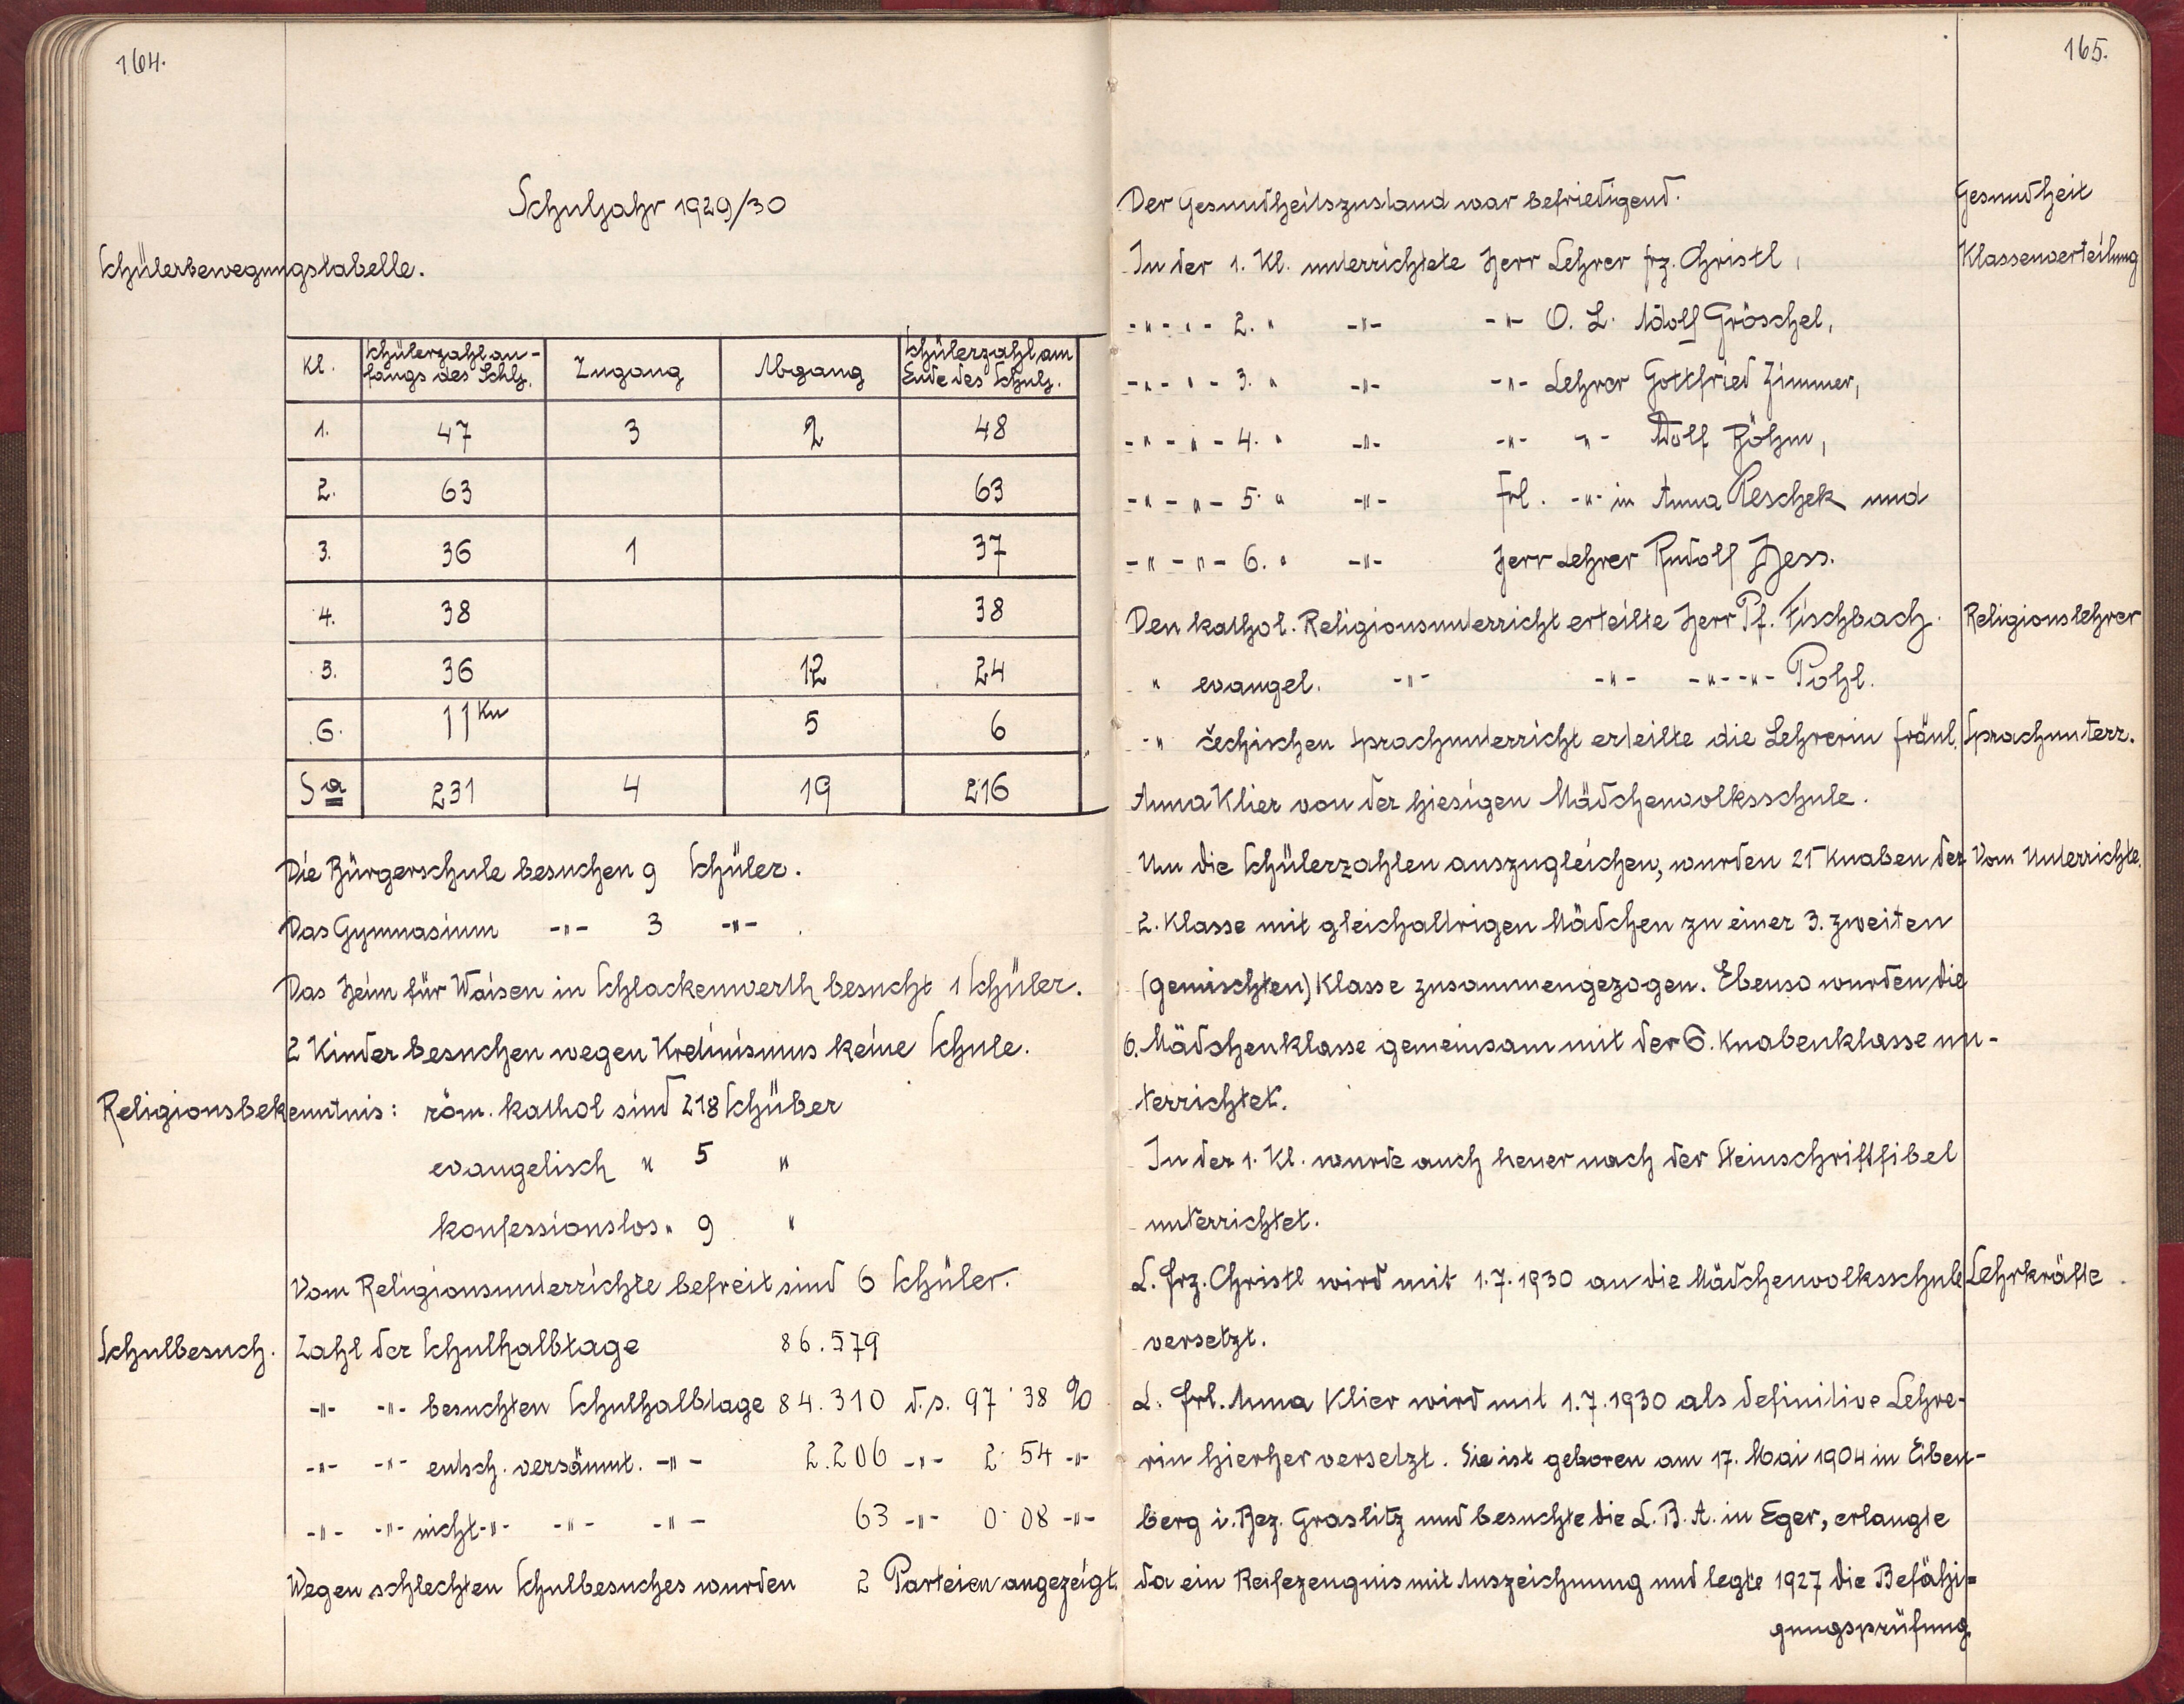 164.
Schuljahr 1929/30
Schülerbewegungstabelle.
Kl. Schülerzahl an- Zugang Abgang Schülerzahl am
fangs des Schlj. Ende des Schulj.
1. 47 3 2 48
2. 63 63
3. 36 1 37
4. 38 38
5. 36 12 24
6. 11 Kn 5 6
Sa 231 4 19 216
Die Bürgerschule besuchen 9 Schüler.
Das Gymnasium -"- 3 -"- .
Das Heim für Waisen in Schlackenwerth besucht 1 Schüler.
2 Kinder besuchen wegen Kretinismus keine Schule.
Religionsbekenntnis: röm. kathol sind 218 Schüber
evangelisch " 5 "
konfessionslos " 9 "
Vom Religionsunterrichte befreit sind 6 Schüler.
Schulbesuch. Zahl der Schulhalbtage 86.579
-"- -"- besuchten Schulhalbtage 84.310 d.s. 97˙38 %
-"- -"- entsch. versäumt. -"- 2.206 -"- 2˙54 -"-
-"- -"- nicht -"- -"- -"- 63 -"- 0˙08 -"-
Wegen schlechten Schulbesuches wurden 2 Parteien angezeigt.
165.
Der Gesundheitszustand war befriedigend. Gesundheit
In der 1. Kl. unterrichtete Herr Lehrer Frz. Christl, Klassenverteilung
-"- " - 2. " -"- -"- O. L. Adolf Gröschel,
-"- " - 3. " -"- -"- Lehrer Gottfried Zimmer,
-"- " - 4. " -"- -"- -"- Adolf Böhm,
-"- " - 5. " -"- Frl. -"- in Anna Peschek und
-"- " - 6. " -"- Herr Lehrer Rudolf Hess.
Den kathol. Religionsunterricht erteilte Herr Pf. Fischbach. Religionslehrer
" evangel. -"- -"- -"- -"- Pohl.
-" čechischen Sprachunterricht erteilte die Lehrerin Fräul. Sprachunterr.
Anna Klier von der hiesigen Mädchenvolksschule.
Um die Schülerzahlen auszugleichen, wurden 21 Knaben der Vom Unterrichte.
2. Klasse mit gleichaltrigen Mädchen zu einer 3. zweiten
(gemischten) Klasse zusammengezogen. Ebenso wurden die
6. Mädchenklasse gemeinsam mit der 6. Knabenklasse un-
terrichtet.
In der 1. Kl. wurde auch heuer nach der Steinschriftfibel
unterrichtet.
L. Frz. Christl wird mit 1.7.1930 an die Mädchenvolksschule Lehrkräfte.
versetzt.
L. Frl. Anna Klier wird mit 1.7.1930 als definitive Lehre-
rin hierher versetzt. Sie ist geboren am 17. Mai 1904 in Eiben-
berg i. Bez. Graslitz und besuchte die L. B. A. in Eger, erlangte
da ein Reifezeugnis mit Auszeichnung und legte 1927 die Befähi-
gungsprüfung.